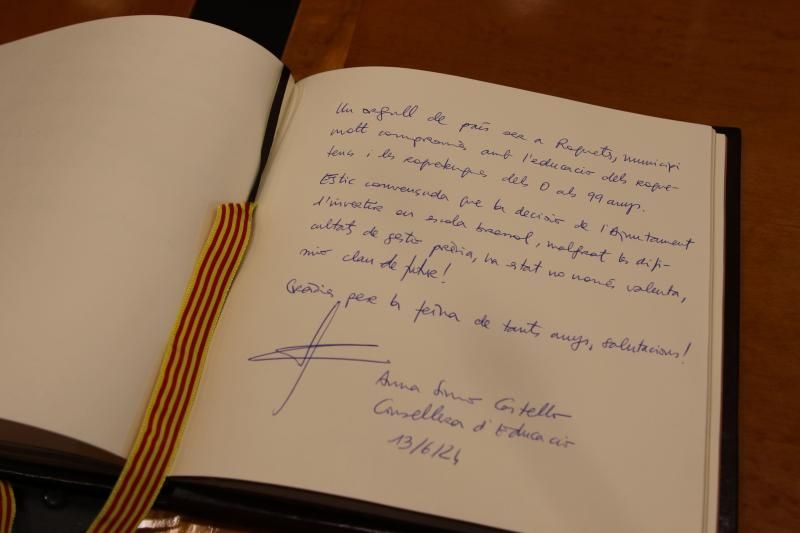 Un orgull de país ser a Roquetes, municipi
molt compromès amb l'educació dels roque-
tencs i les roquetenques dels 0 als 99 anys.
Estic convençuda que la decisió de l'Ajuntament
d'invertir en escola bressol, malgrat les difi-
cultats de gestió prèvia, ha estat no només valenta,
sinó clau de futur!
Gràcies per la feina de tants anys, salutacions!
Anna Simó Castelló
Consellera d'Educació
13/6/24